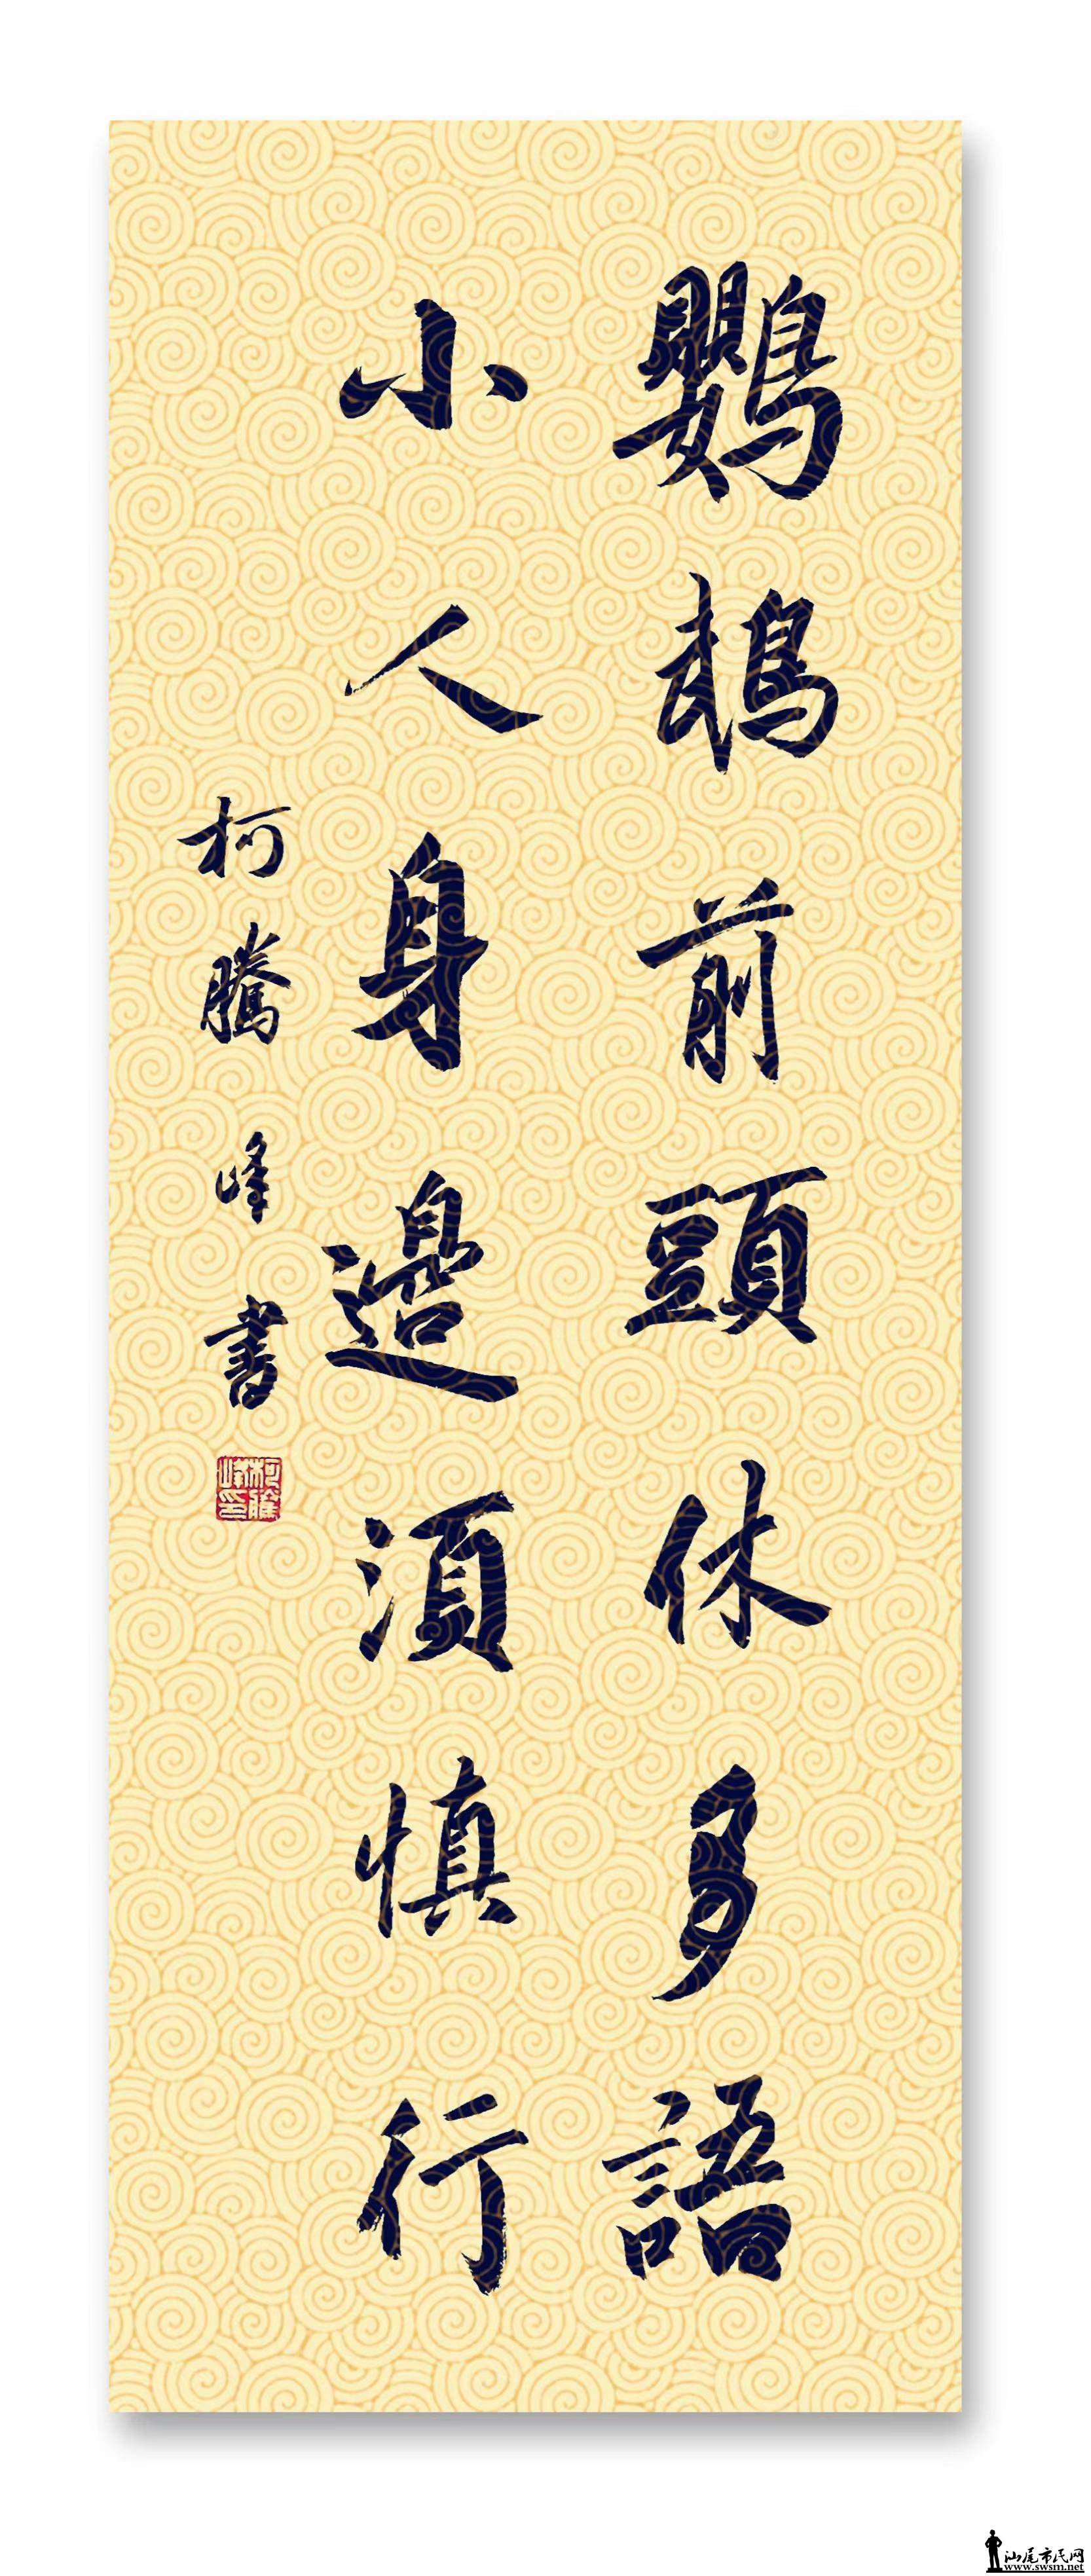 鸚鵡前頭休多語
小人身邊須慎行
柯騰峰書
柯騰峰印
汕尾市民网
www.swsm.net